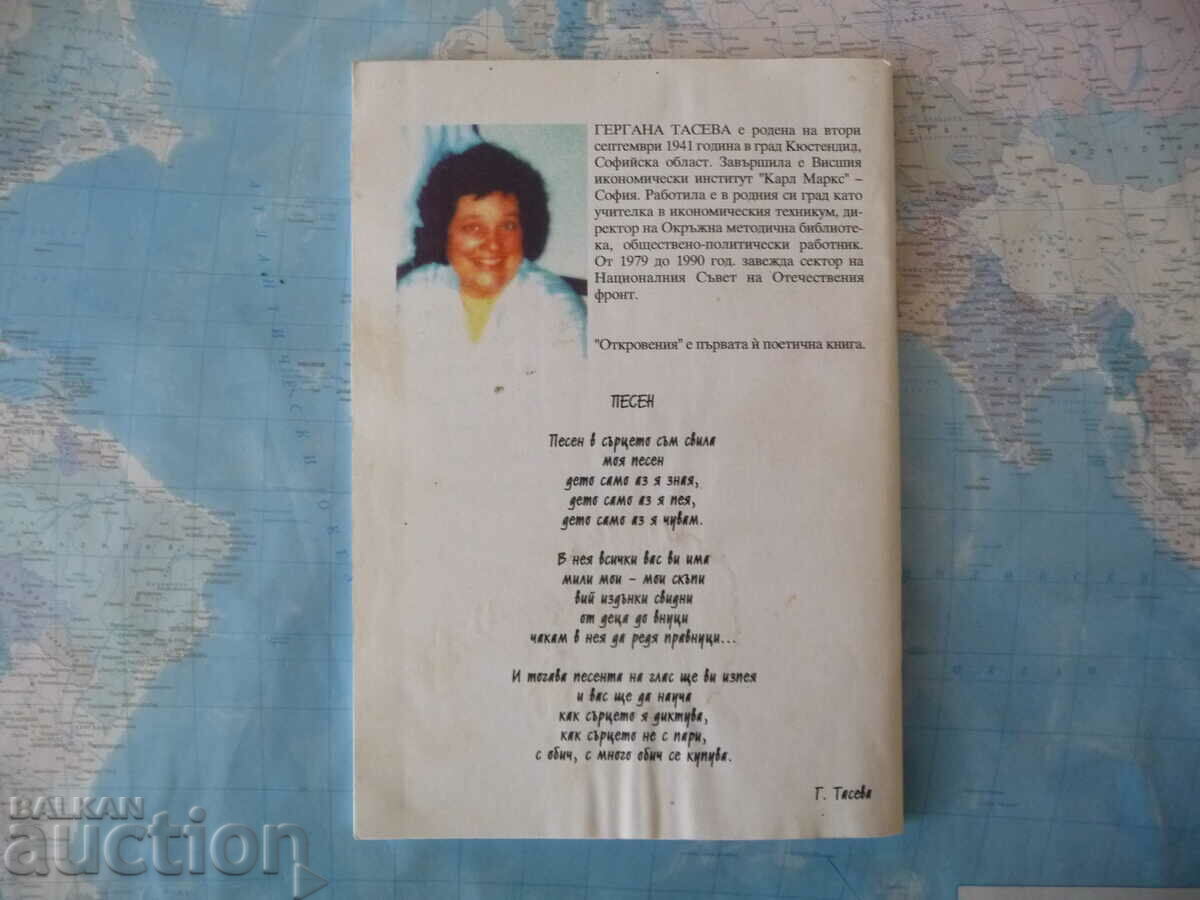 ГЕРГАНА ТАСЕВА е родена на втори
септември 1941 година в град Кюстендил,
Софийска област. Завършила е Висшия
икономически институт "Карл Маркс" –
София. Работила е в родния си град като
учителка в икономическия техникум, ди-
ректор на Окръжна методична библиоте-
ка, обществено-политически работник.
От 1979 до 1990 год. завежда сектор на
Националния Съвет на Отечествения
фронт.
"Откровения" е първата ѝ поетична книга.
ПЕСЕН
Песен в сърцето съм свила
моя песен
дето само аз я зная,
дето само аз я пея,
дето само аз я чувам.
В нея всички вас ви има
мили мои – мои скъпи
вий издънки свидни
от деца до внуци
чакам в нея да редя правнуци...
И тогава песента на глас ще ви изпея
и вас ще да науча
как сърцето я диктува,
как сърцето не с пари,
с обич, с много обич се купува.
Г. Тасева
BALKAN
auction